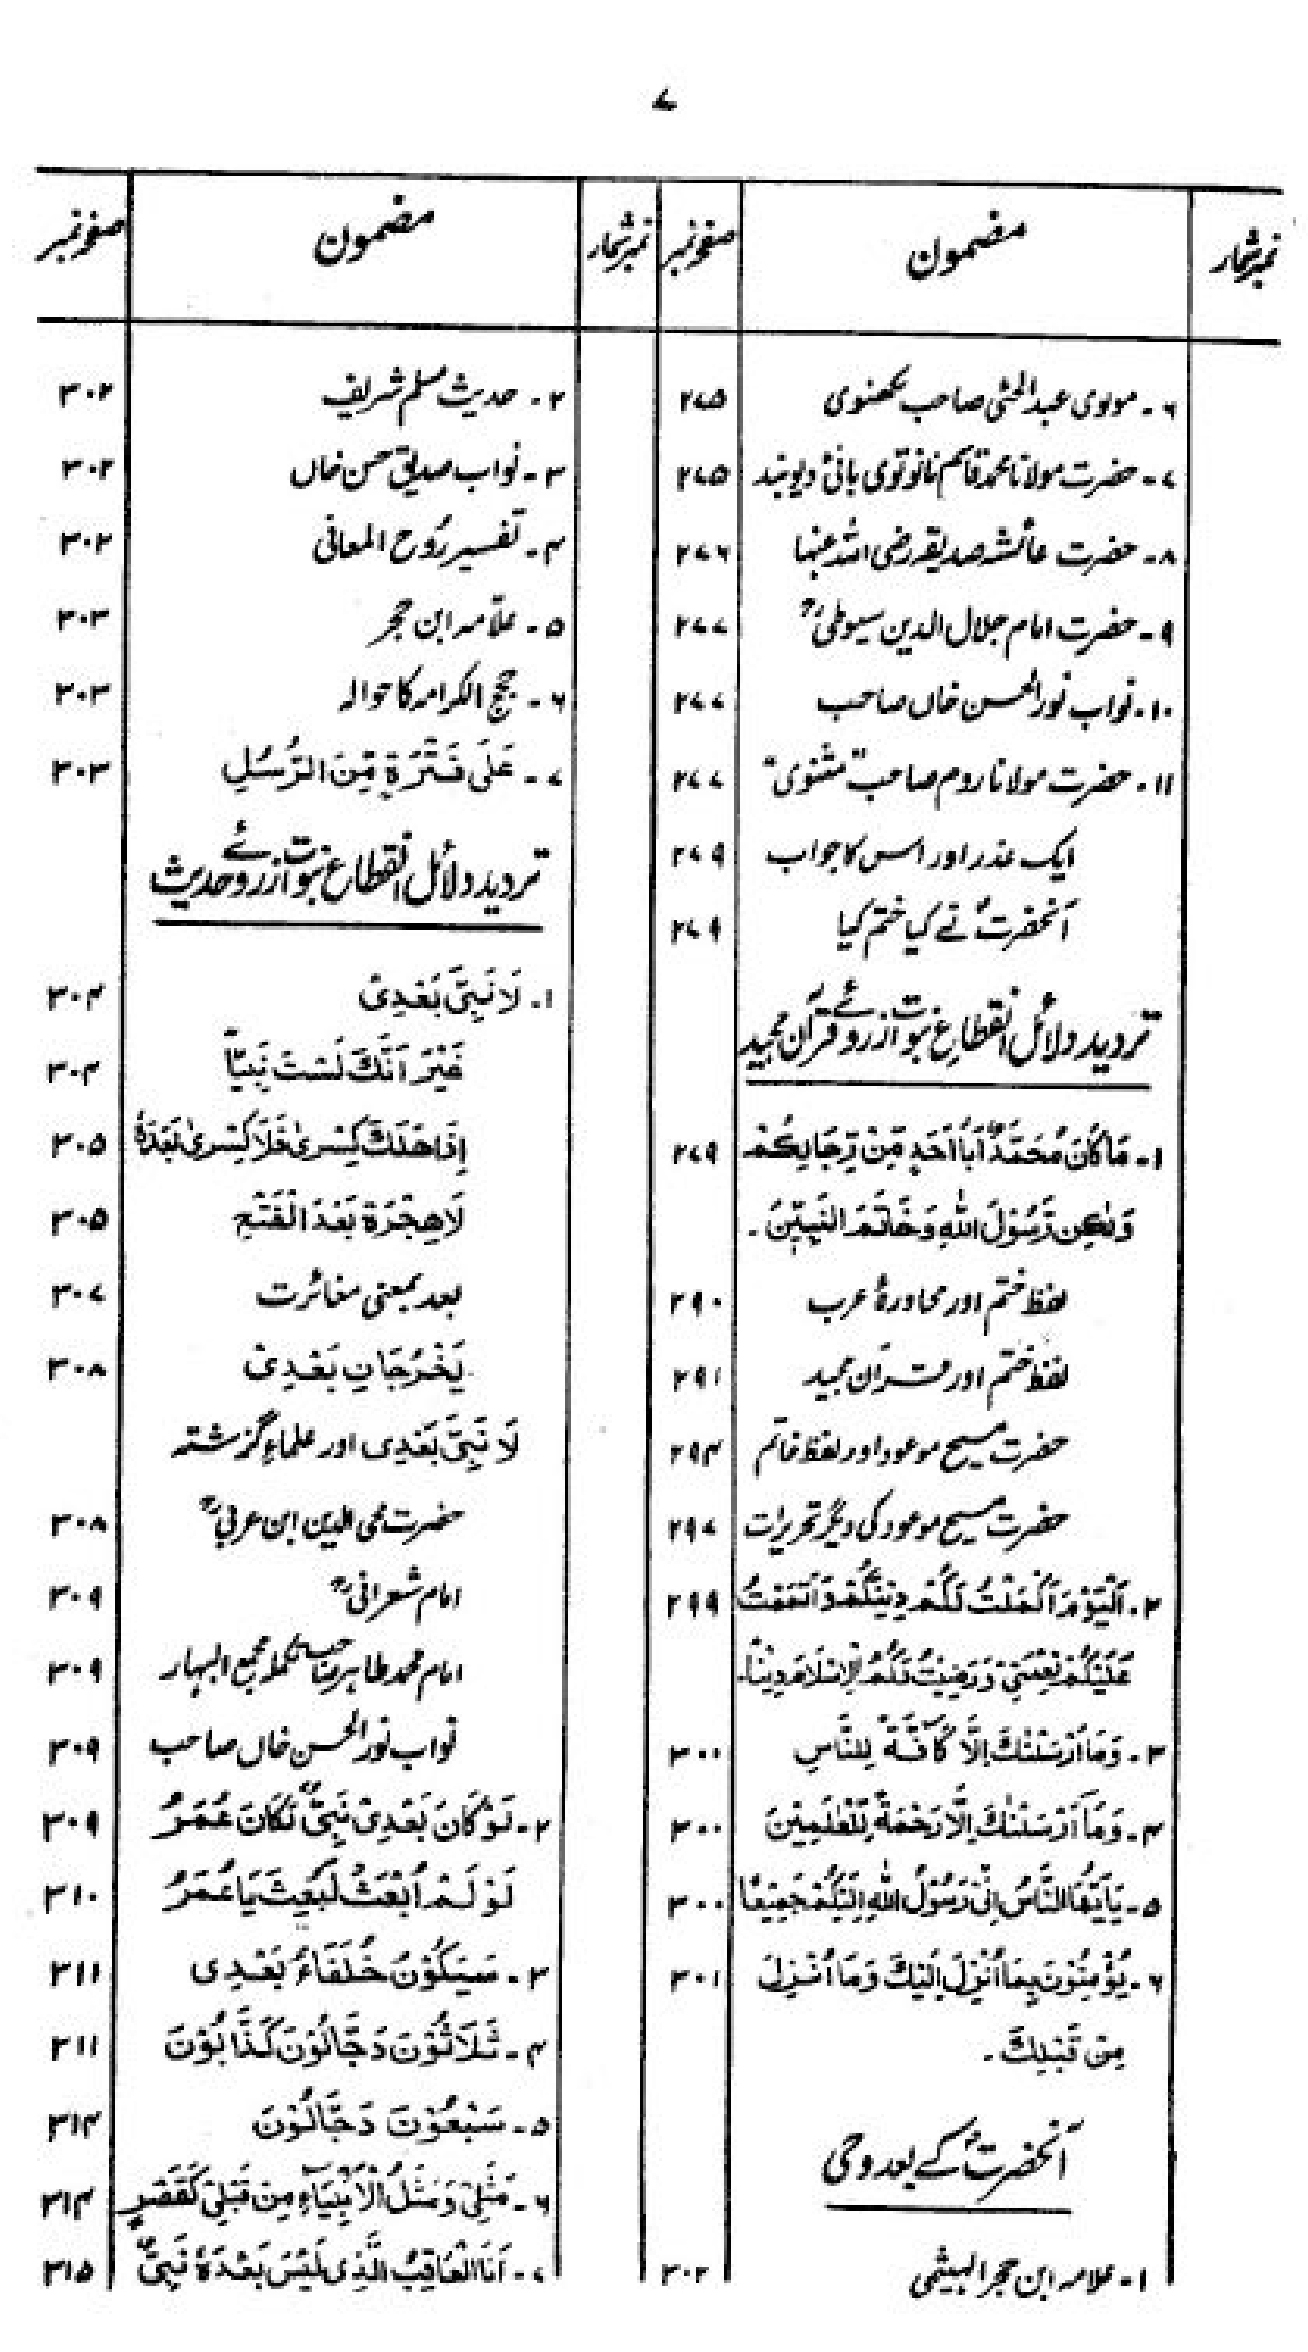 ۷
نمبرشمار
مضمون
صفحہ نمبر
۶ - مولوی عبدالحئی صاحب لکھنوی ۲۷۵
۷ - حضرت مولانا محمد قاسم نانوتوی بانیٔ دیوبند ۲۷۵
۸ - حضرت عائشہ صدیقہ رضی اللہ عنہا ۲۷۶
۹ - حضرت امام جلال الدین سیوطیؒ ۲۷۷
۱۰ - نواب نور الحسن خاں صاحب ۲۷۷
۱۱ - حضرت مولانا روم صاحب "مثنوی" ۲۷۷
ایک عذر اور اس کا جواب ۲۷۹
آنحضرتؐ نے کیا ختم کیا ۲۷۹
تردید دلائل انقطاع نبوت از روئے قرآن مجید
۱ - مَا كَانَ مُحَمَّدٌ اَبَا اَحَدٍ مِّنْ رِّجَالِكُمْ ۲۷۹
وَلٰكِنْ رَّسُوْلَ اللّٰهِ وَخَاتَمَ النَّبِيّٖنَ -
لفظ ختم اور محاورۂ عرب ۲۹۰
لفظ ختم اور قرآن مجید ۲۹۱
حضرت مسیح موعود اور لفظ خاتم ۲۹۴
حضرت مسیح موعود کی دیگر تحریرات ۲۹۷
۲ - اَلْيَوْمَ اَكْمَلْتُ لَكُمْ دِيْنَكُمْ وَاَتْمَمْتُ ۲۹۹
عَلَيْكُمْ نِعْمَتِيْ وَرَضِيْتُ لَكُمُ الْاِسْلَامَ دِيْنًا -
۳ - وَمَا اَرْسَلْنٰكَ اِلَّا كَآفَّةً لِّلنَّاسِ ۳۰۰
۴ - وَمَا اَرْسَلْنٰكَ اِلَّا رَحْمَةً لِّلْعٰلَمِيْنَ ۳۰۰
۵ - يٰاَيُّهَا النَّاسُ اِنِّيْ رَسُوْلُ اللّٰهِ اِلَيْكُمْ جَمِيْعًا ۳۰۰
۶ - يُؤْمِنُوْنَ بِمَا اُنْزِلَ اِلَيْكَ وَمَا اُنْزِلَ ۳۰۱
مِنْ قَبْلِكَ -
آنحضرتؐ کے بعد وحی
۱ - علامہ ابن حجر الہیثمی ۳۰۲
نمبرشمار
مضمون
صفحہ نمبر
۲ - حدیث مسلم شریف ۳۰۲
۳ - نواب صدیق حسن خاں ۳۰۲
۴ - تفسیر رُوح المعانی ۳۰۲
۵ - علّامہ ابن حجر ۳۰۳
۶ - حجج الکرامہ کا حوالہ ۳۰۳
۷ - عَلٰى فَتْرَةٍ مِّنَ الرُّسُلِ ۳۰۳
تردید دلائل انقطاع نبوت از روئے حدیث
۱ - لَا نَبِيَّ بَعْدِيْ ۳۰۴
غَيْرَ اَنَّكَ لَسْتَ نَبِيًّا ۳۰۴
اِذَا هَلَكَ كِسْرٰى فَلَا كِسْرٰى بَعْدَهٗ ۳۰۵
لَا هِجْرَةَ بَعْدَ الْفَتْحِ ۳۰۵
بعد بمعنی مغائرت ۳۰۷
يَخْرُجَانِ بَعْدِيْ ۳۰۸
لَا نَبِيَّ بَعْدِي اور علماءِ گزشتہ
حضرت محی الدین ابن عربیؒ ۳۰۸
امام شعرانیؒ ۳۰۹
امام محمد طاہر صاحب تکملہ مجمع البحار ۳۰۹
نواب نور الحسن خاں صاحب ۳۰۹
۲ - لَوْ كَانَ بَعْدِيْ نَبِيٌّ لَكَانَ عُمَرُ ۳۰۹
لَوْ لَمْ اُبْعَثْ لَبُعِثَ يَا عُمَرُ ۳۱۰
۳ - سَيَكُوْنُ خُلَفَاءُ بَعْدِي ۳۱۱
۴ - ثَلَاثُوْنَ دَجَّالُوْنَ كَذَّابُوْنَ ۳۱۱
۵ - سَبْعُوْنَ دَجَّالُوْنَ ۳۱۴
۶ - مَثَلِيْ وَمَثَلُ الْاَنْبِيَآءِ مِنْ قَبْلِيْ كَقَصْرٍ ۳۱۴
۷ - اَنَا الْعَاقِبُ الَّذِي لَيْسَ بَعْدَهٗ نَبِيٌّ ۳۱۵